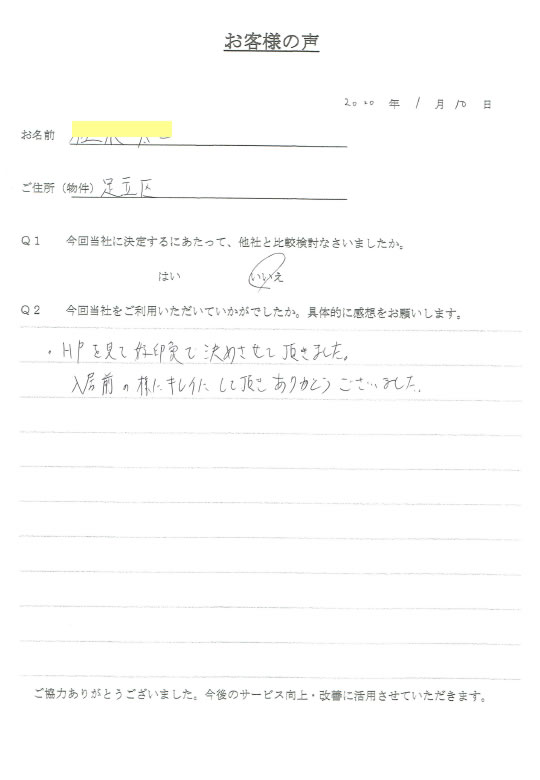 お客様の声
2020 年 1 月 10 日
お名前
ご住所（物件） 足立区
Q1 今回当社に決定するにあたって、他社と比較検討なさいましたか。
はい いいえ
Q2 今回当社をご利用いただいていかがでしたか。具体的に感想をお願いします。
・HPを見て好印象で決めさせて頂きました。
入居前の様にキレイにして頂きありがとうございました。
ご協力ありがとうございました。今後のサービス向上・改善に活用させていただきます。